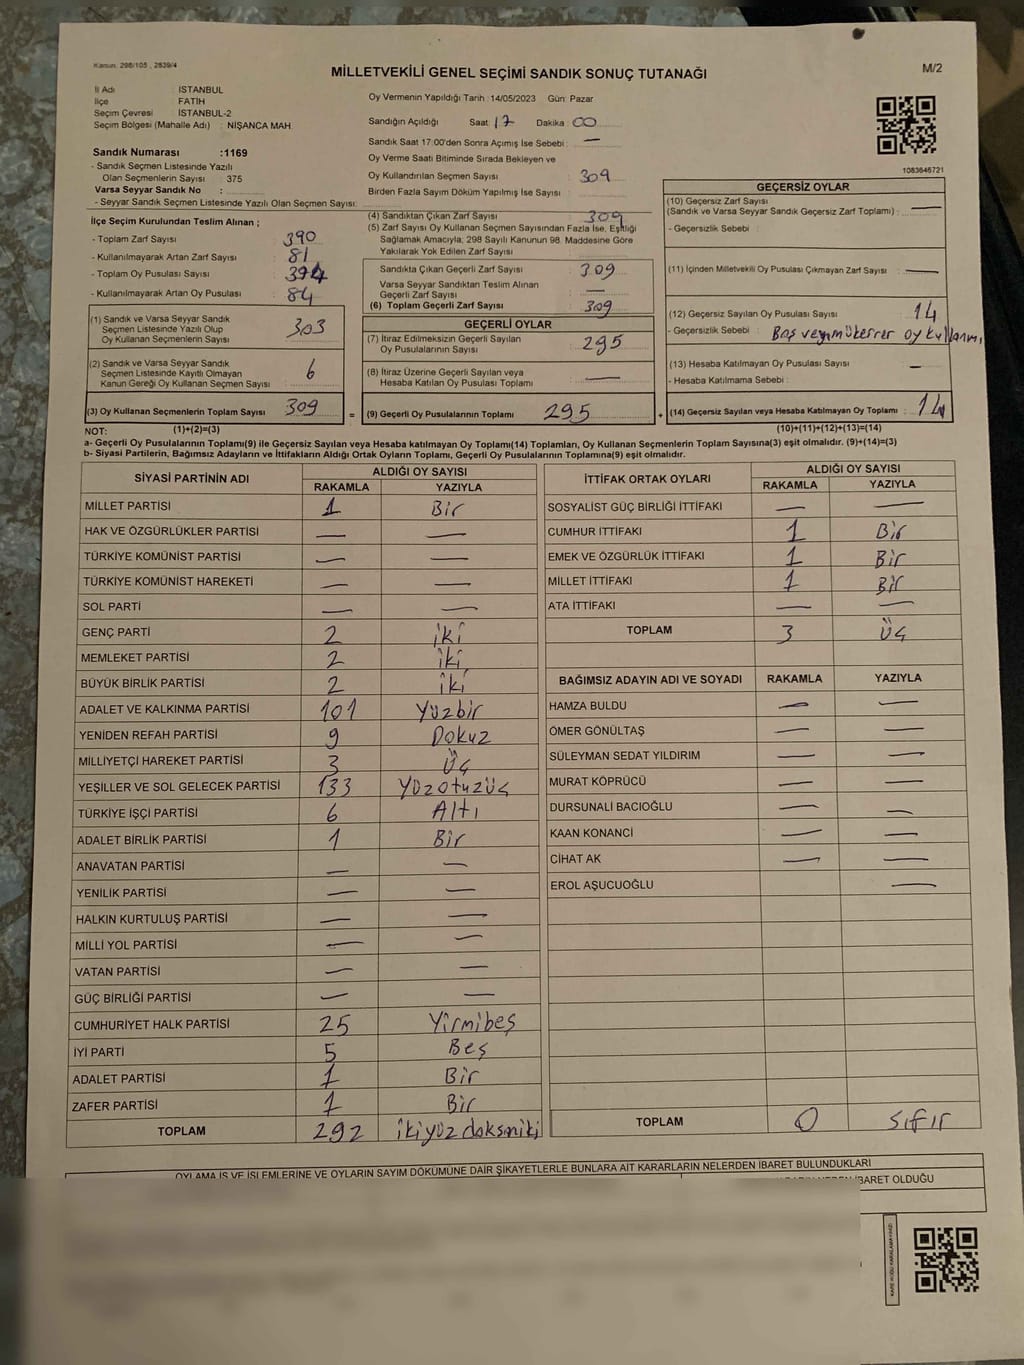 Kanun: 298/105 , 2839/4
MİLLETVEKİLİ GENEL SEÇİMİ SANDIK SONUÇ TUTANAĞI
M/2
İl Adı : İSTANBUL
İlçe : FATİH
Seçim Çevresi : İSTANBUL-2
Seçim Bölgesi (Mahalle Adı) : NİŞANCA MAH.
Sandık Numarası :1169
- Sandık Seçmen Listesinde Yazılı
Olan Seçmenlerin Sayısı : 375
Varsa Seyyar Sandık No :
- Seyyar Sandık Seçmen Listesinde Yazılı Olan Seçmen Sayısı:
Oy Vermenin Yapıldığı Tarih : 14/05/2023 Gün: Pazar
Sandığın Açıldığı Saat : 17 Dakika : 00
Sandık Saat 17:00'den Sonra Açımış İse Sebebi : —
Oy Verme Saati Bitiminde Sırada Bekleyen ve
Oy Kullandırılan Seçmen Sayısı : 309
Birden Fazla Sayım Döküm Yapılmış İse Sayısı :
1083645721
İlçe Seçim Kurulundan Teslim Alınan ;
- Toplam Zarf Sayısı : 390
- Kullanılmayarak Artan Zarf Sayısı : 81
- Toplam Oy Pusulası Sayısı : 394
- Kullanılmayarak Artan Oy Pusulası : 84
(1) Sandık ve Varsa Seyyar Sandık
Seçmen Listesinde Yazılı Olup
Oy Kullanan Seçmenlerin Sayısı : 303
(2) Sandık ve Varsa Seyyar Sandık
Seçmen Listesinde Kayıtlı Olmayan
Kanun Gereği Oy Kullanan Seçmen Sayısı : 6
(3) Oy Kullanan Seçmenlerin Toplam Sayısı : 309
(4) Sandıktan Çıkan Zarf Sayısı : 309
(5) Zarf Sayısı Oy Kullanan Seçmen Sayısından Fazla İse, Eşitliği
Sağlamak Amacıyla, 298 Sayılı Kanunun 98. Maddesine Göre
Yakılarak Yok Edilen Zarf Sayısı :
Sandıkta Çıkan Geçerli Zarf Sayısı : 309
Varsa Seyyar Sandıktan Teslim Alınan
Geçerli Zarf Sayısı : —
(6) Toplam Geçerli Zarf Sayısı : 309
GEÇERLİ OYLAR
(7) İtiraz Edilmeksizin Geçerli Sayılan
Oy Pusulalarının Sayısı : 295
(8) İtiraz Üzerine Geçerli Sayılan veya
Hesaba Katılan Oy Pusulası Toplamı : —
= (9) Geçerli Oy Pusulalarının Toplamı : 295
GEÇERSİZ OYLAR
(10) Geçersiz Zarf Sayısı
(Sandık ve Varsa Seyyar Sandık Geçersiz Zarf Toplamı) : —
- Geçersizlik Sebebi :
(11) İçinden Milletvekili Oy Pusulası Çıkmayan Zarf Sayısı : —
(12) Geçersiz Sayılan Oy Pusulası Sayısı : 14
- Geçersizlik Sebebi : Boş veya mükerrer oy kullanımı
(13) Hesaba Katılmayan Oy Pusulası Sayısı : —
- Hesaba Katılmama Sebebi :
+ (14) Geçersiz Sayılan veya Hesaba Katılmayan Oy Toplamı : 14
NOT: (1)+(2)=(3)
(10)+(11)+(12)+(13)=(14)
a- Geçerli Oy Pusulalarının Toplamı(9) ile Geçersiz Sayılan veya Hesaba katılmayan Oy Toplamı(14) Toplamları, Oy Kullanan Seçmenlerin Toplam Sayısına(3) eşit olmalıdır. (9)+(14)=(3)
b- Siyasi Partilerin, Bağımsız Adayların ve İttifakların Aldığı Ortak Oyların Toplamı, Geçerli Oy Pusulalarının Toplamına(9) eşit olmalıdır.
SİYASİ PARTİNİN ADI ALDIĞI OY SAYISI
RAKAMLA YAZIYLA
MİLLET PARTİSİ 1 Bir
HAK VE ÖZGÜRLÜKLER PARTİSİ — —
TÜRKİYE KOMÜNİST PARTİSİ — —
TÜRKİYE KOMÜNİST HAREKETİ — —
SOL PARTİ — —
GENÇ PARTİ 2 iki
MEMLEKET PARTİSİ 2 iki
BÜYÜK BİRLİK PARTİSİ 2 iki
ADALET VE KALKINMA PARTİSİ 101 Yüzbir
YENİDEN REFAH PARTİSİ 9 Dokuz
MİLLİYETÇİ HAREKET PARTİSİ 3 Üç
YEŞİLLER VE SOL GELECEK PARTİSİ 133 Yüzotuzüç
TÜRKİYE İŞÇİ PARTİSİ 6 Altı
ADALET BİRLİK PARTİSİ 1 Bir
ANAVATAN PARTİSİ — —
YENİLİK PARTİSİ — —
HALKIN KURTULUŞ PARTİSİ — —
MİLLİ YOL PARTİSİ — —
VATAN PARTİSİ — —
GÜÇ BİRLİĞİ PARTİSİ — —
CUMHURİYET HALK PARTİSİ 25 Yirmibeş
İYİ PARTİ 5 Beş
ADALET PARTİSİ 1 Bir
ZAFER PARTİSİ 1 Bir
TOPLAM 292 ikiyüz doksaniki
İTTİFAK ORTAK OYLARI ALDIĞI OY SAYISI
RAKAMLA YAZIYLA
SOSYALİST GÜÇ BİRLİĞİ İTTİFAKI — —
CUMHUR İTTİFAKI 1 Bir
EMEK VE ÖZGÜRLÜK İTTİFAKI 1 Bir
MİLLET İTTİFAKI 1 Bir
ATA İTTİFAKI — —
TOPLAM 3 Üç
BAĞIMSIZ ADAYIN ADI VE SOYADI RAKAMLA YAZIYLA
HAMZA BULDU — —
ÖMER GÖNÜLTAŞ — —
SÜLEYMAN SEDAT YILDIRIM — —
MURAT KÖPRÜCÜ — —
DURSUNALİ BACIOĞLU — —
KAAN KONANCİ — —
CİHAT AK — —
EROL AŞUCUOĞLU —
TOPLAM 0 sıfır
OYLAMA İŞ VE İŞLEMLERİNE VE OYLARIN SAYIM DÖKÜMÜNE DAİR ŞİKAYETLERLE BUNLARA AİT KARARLARIN NELERDEN İBARET BULUNDUKLARI
İBARET OLDUĞU
KARE KODU KARALAMAYINIZ!